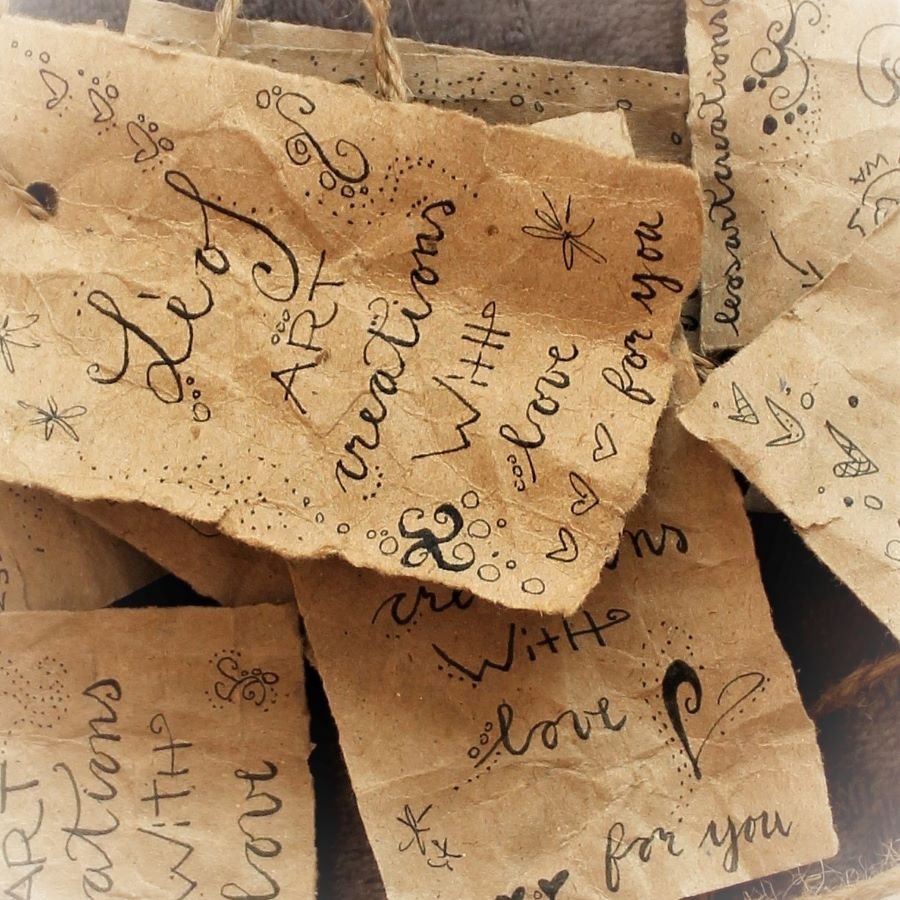 Lèos
ART
creations
WitH
love
for you
lesartcreations
WitH
love
for you
ART
WitH
love